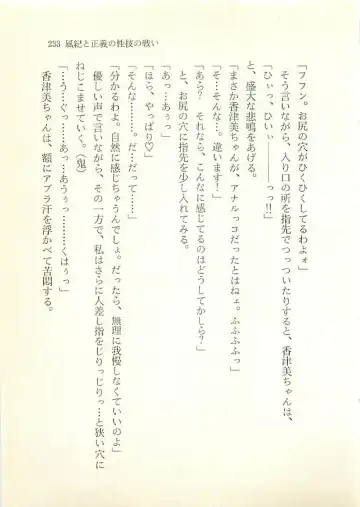 233 風紀と正義の性技の戦い
「フフン。お尻の穴がひくひくしてるわよぉ」
そう言いながら、入り口の所を指先でつっついたりすると、香津美ちゃんは、
「ひぃっ、ひぃぃ………っっ‼」
と、盛大な悲鳴をあげる。
「まさか香津美ちゃんが、アナルっコだったとはねェ。ふふふふっ」
「そ…そんな…。違います!」
「あら? それなら、こんなに感じてるのはどうしてかしら?」
と、お尻の穴に指先を少し入れてみる。
「あっ…あぁっ」
「ほら、やっぱり♡」
「そんな………。だ…だって……」
「分かるわよ。自然に感じちゃうんでしょ。だったら、無理に我慢しなくていいのよ」
優しい声で言いながら、その一方で、私はさらに人差し指をじりっじりっ…と狭い穴に
ねじこませていく。(鬼)
「…う…ぐぅ………あっ…あうぅっ………くはぅっ」
香津美ちゃんは、額にアブラ汗を浮かべて苦悶する。